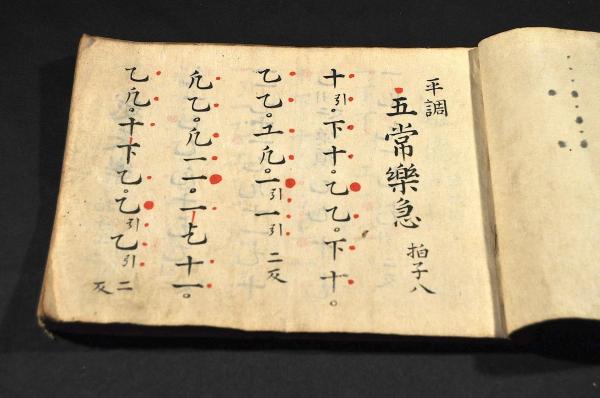 平調
五常樂急 拍子八
十引。下十。乙乙。下十。
乙乙。工凢。一引一引 二反
凢乙。凢一一。一乞十一。
乙凢。十下乙。乙引乙引 二反